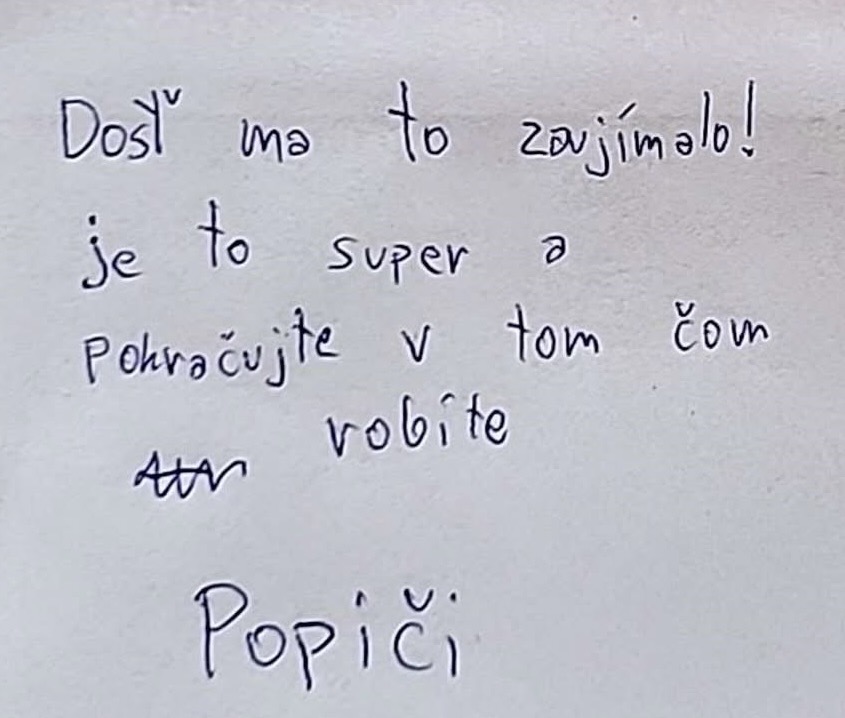 Dosť ma to zaujímalo!
je to super a
pokračujte v tom čom
robíte
Popiči